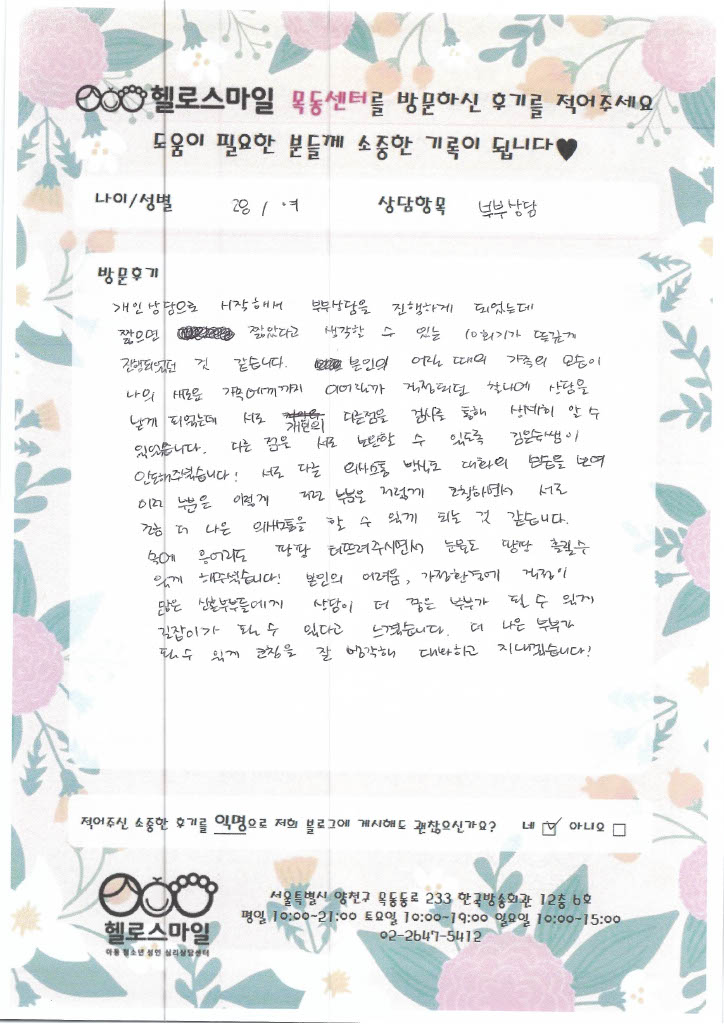 헬로스마일 목동센터를 방문하신 후기를 적어주세요
도움이 필요한 분들께 소중한 기록이 됩니다♥
나이/성별 28 / 여 상담항목 부부상담
방문후기
개인상담으로 시작해서 부부상담을 진행하게 되었는데
짧으면 짧았다고 생각할 수 있는 10회기가 뜻깊게
진행되었던 것 같습니다. 본인의 어릴 때의 가족의 모습이
나의 새로운 가족에게까지 이어질까 걱정되던 찰나에 상담을
받게 되었는데 서로 개인의 다른점을 검사를 통해 상세히 알 수
있었습니다. 다른 점을 서로 보완할 수 있도록 쌤이
인도해주셨습니다! 서로 다른 의사소통 방식도 대화의 모습을 보며
이런 부분은 이렇게 저런 부분은 저렇게 코칭하면서 서로
좀 더 나은 의사소통을 할 수 있게 되는 것 같습니다.
속에 응어리도 팡팡 터뜨려주시면서 눈물도 팡팡 흘릴수
있게 해주셨습니다! 본인의 어려움, 가정환경에 걱정이
많은 신혼부부들에게 상담이 더 좋은 부부가 될 수 있게
길잡이가 될 수 있다고 느꼈습니다. 더 나은 부부가
될 수 있게 코칭을 잘 생각해 대화하고 지내겠습니다!
적어주신 소중한 후기를 익명으로 저희 블로그에 게시해도 괜찮으신가요? 네 ☑ 아니오 □
헬로스마일
아동 청소년 성인 심리상담센터
서울특별시 양천구 목동동로 233 한국방송회관 12층 6호
평일 10:00-21:00 토요일 10:00-19:00 일요일 10:00-15:00
02-2647-5412